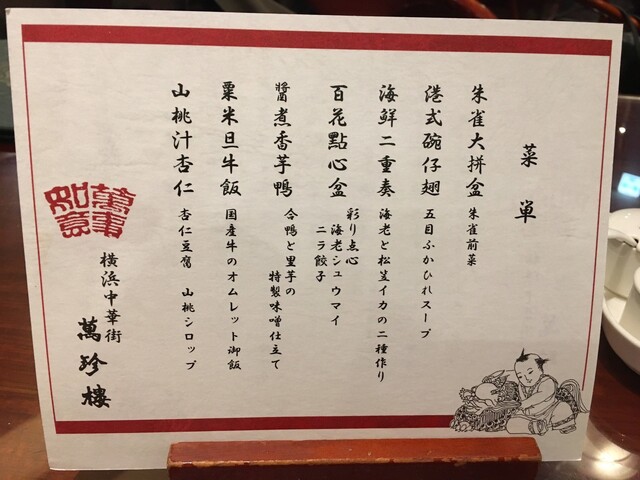 菜単
朱雀大拼盆
朱雀前菜
港式碗仔翅
五目ふかひれスープ
海鮮二重奏
海老と松笠イカの二種作り
百花點心盆
彩り点心
海老シュウマイ
ニラ餃子
醬煮香芋鴨
合鴨と里芋の
特製味噌仕立て
粟米旦牛飯
国産牛のオムレット御飯
山桃汁杏仁
杏仁豆腐 山桃シロップ
萬事
如意
横浜中華街
萬珍樓